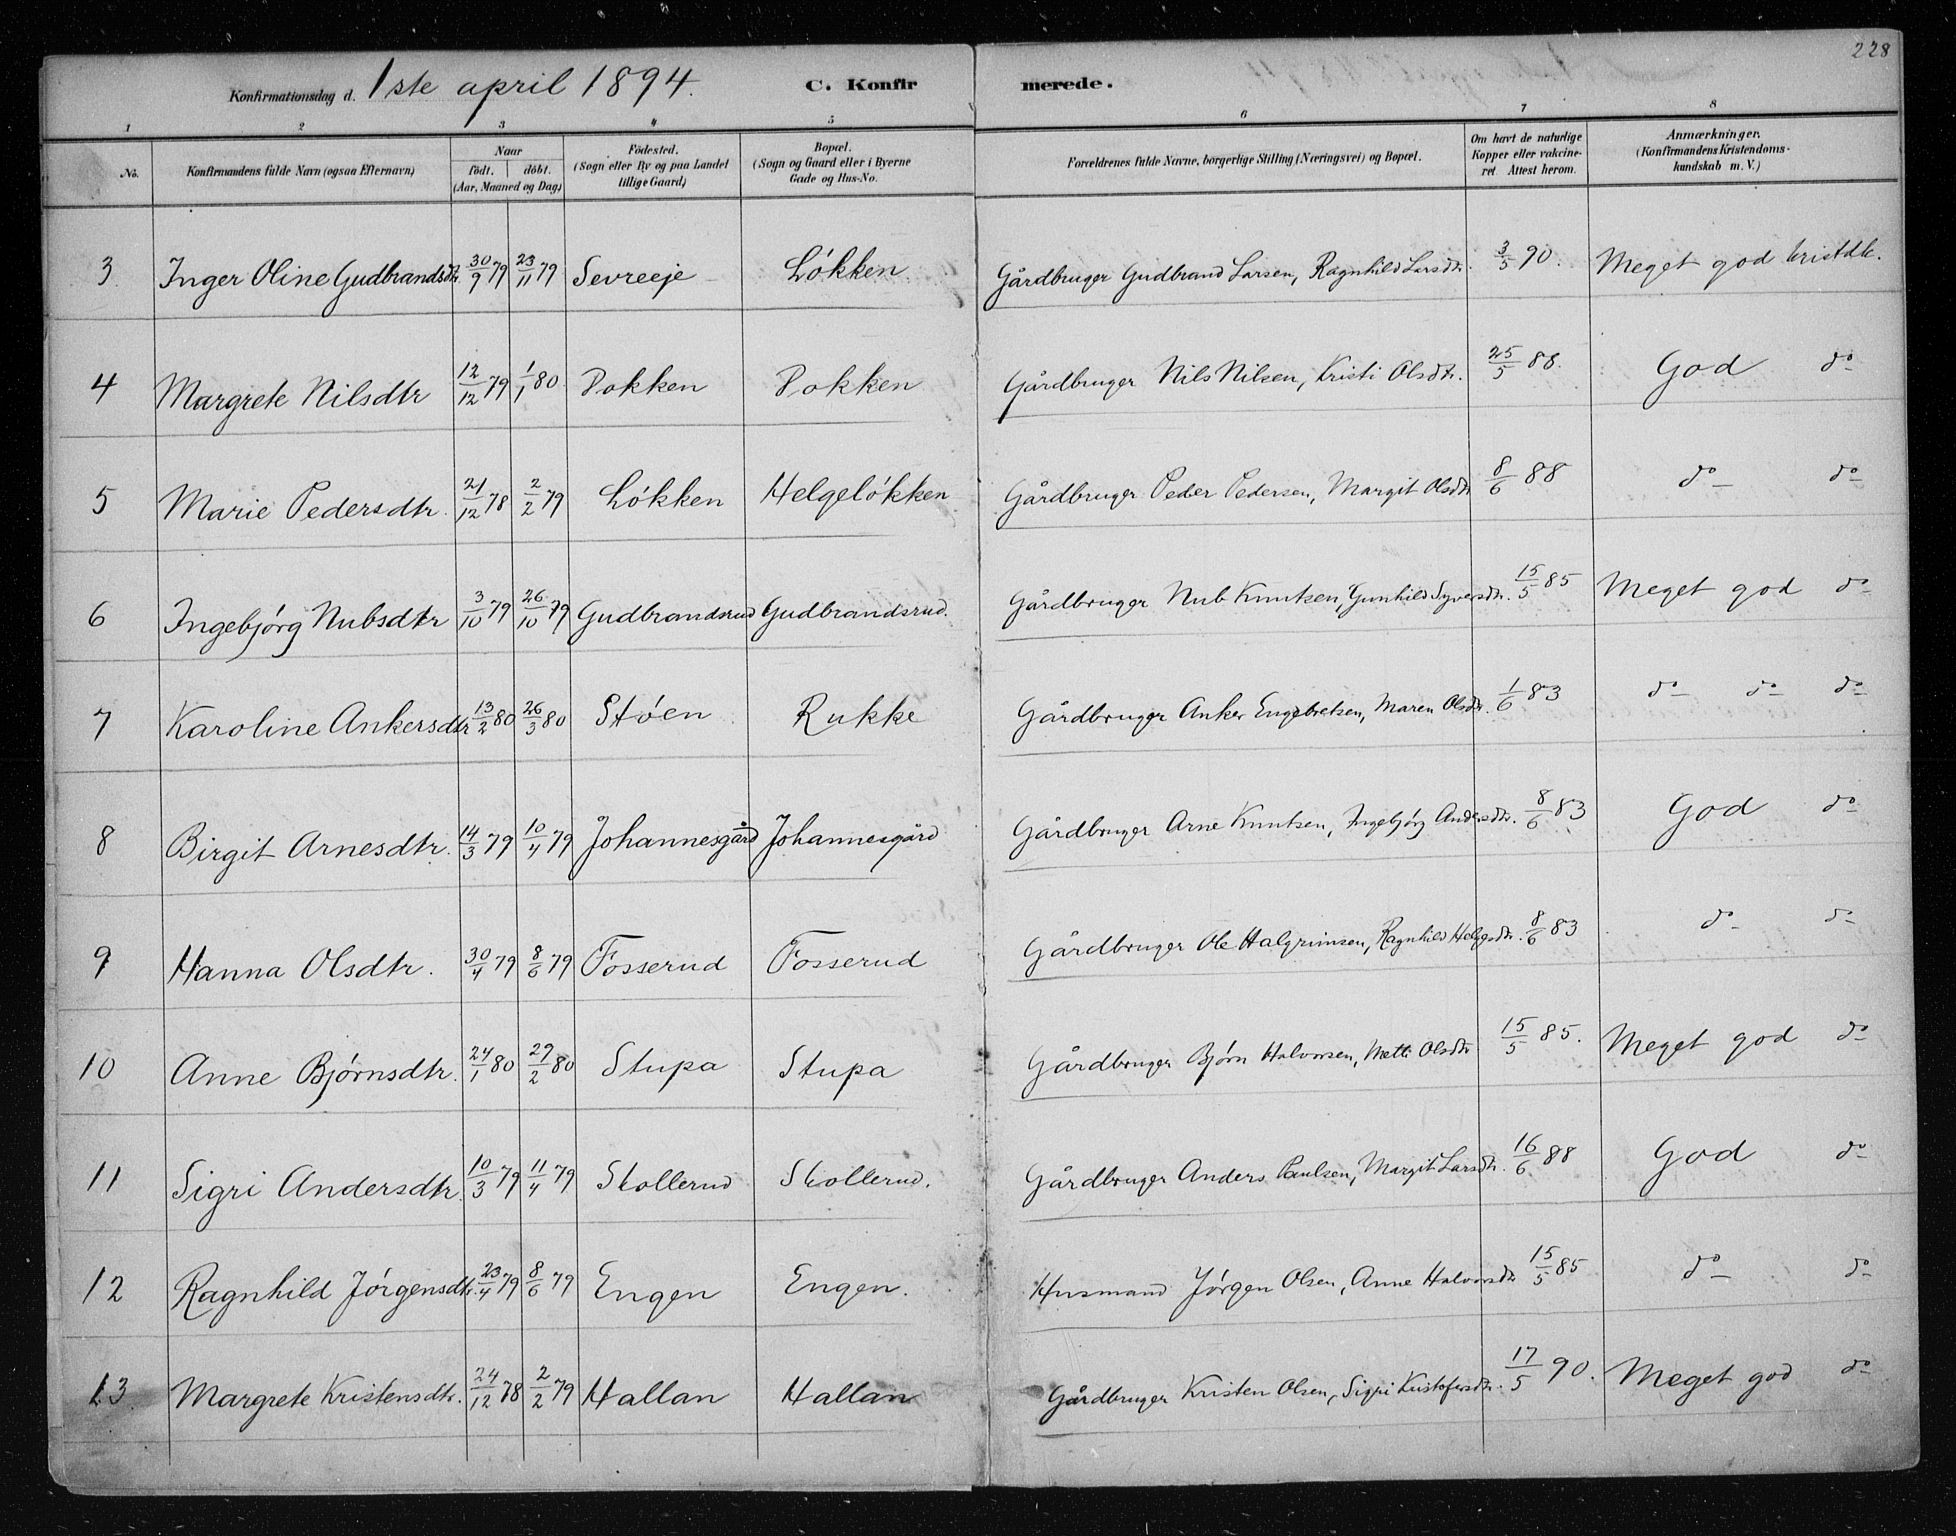 228
Konfirmationsdag d. 1ste april 1894. C. Konfirmerede.
1 2 3 4 5 6 7 8
No. Konfirmandens fulde Navn (ogsaa Efternavn) Naar födt. döbt. (Aar, Maaned og Dag) Födested. (Sogn eller By og paa Landet tillige Gaard) Bopæl. (Sogn og Gaard eller i Byerne Gade og Hus-No. Forældrenes fulde Navne, borgerlige Stilling (Næringsvei) og Bopæl. Om havt de naturlige Kopper eller vakcineret. Attest herom. Anmærkninger. (Konfirmandens Kristendomskundskab m. V.)
3 Inger Oline Gudbrandsdtr. 30/9 79 23/11 79 Sevreeje Løkken Gårdbruger Gudbrand Larsen, Ragnhild Larsdtr. 3/5 90. Meget god kristdk.
4 Margrete Nilsdtr 12/12 79 1/1 80. Dokken Dokken Gårdbruger Nils Nilsen, Kristi Olsdtr. 25/5 88. God do
5 Marie Pedersdtr. 21/12 78 2/2 79 Løkken Helgeløkken Gårdbruger Peder Pedersen, Margit Olsdtr 8/6 88 do do
6 Ingebjørg Nubsdtr 3/10 79 26/10 79 Gudbrandsrud Gudbrandsrud. Gårdbruger Nub Knutsen, Gunhild Syversdtr. 15/5 85 Meget god do
7 Karoline Ankersdtr 13/2 80 26/3 80 Støen Rukke Gårdbruger Anker Engebretsen, Maren Olsdtr. 1/6 83 do do do
8 Birgit Arnesdtr. 14/3 79 10/4 79 Johannesgård Johannesgård Gårdbruger Arne Knutsen, Ingebjørg Andersdtr. 8/6 83 God do
9 Hanna Olsdtr. 30/4 79 8/6 79 Fosserud Fosserud Gårdbruger Ole Halgrimsen, Ragnhild Helgesdtr. 8/6 83 do do
10 Anne Bjørnsdtr. 24/1 80 29/2 80 Stupa Stupa Gårdbruger Bjørn Halvorsen, Metti Olsdtr 15/5 85. Meget god do
11 Sigri Andersdtr. 10/3 79 11/4 79 Skollerud Skollerud. Gårdbruger Anders Paulsen, Margit Larsdtr. 16/6 88 God do
12 Ragnhild Jørgensdtr. 23/4 79 8/6 79 Engen Engen. Husmand Jørgen Olsen, Anne Halvorsdtr 15/5 85 do do
13. Margrete Kristensdtr. 24/12 78 2/2 79 Hallan Hallan Gårdbruger Kristen Olsen, Sigri Kristofersdtr. 17/5 90. Meget god do